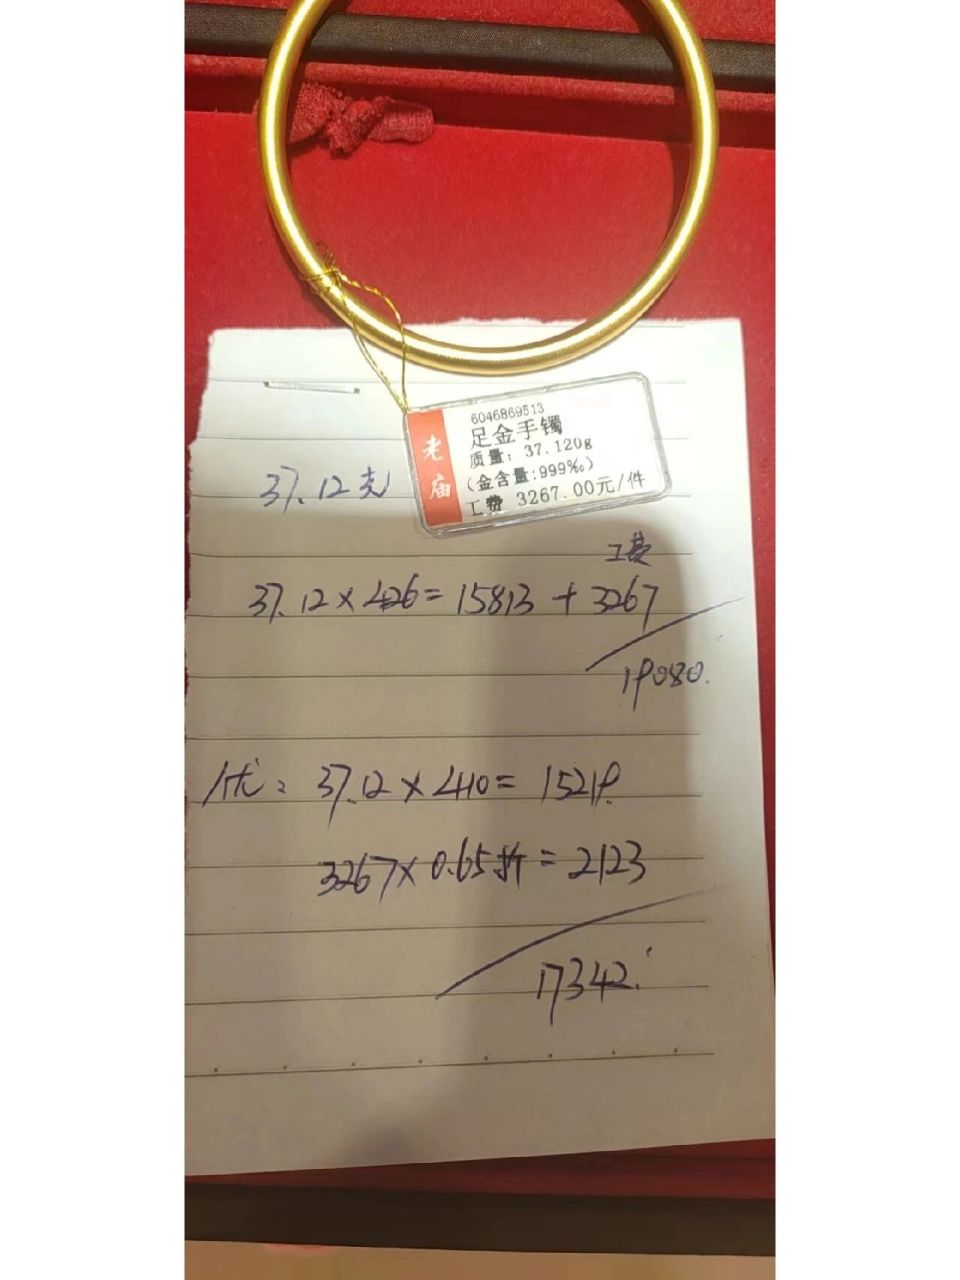 6046869513
老庙
足金手镯
质量: 37.120g
(金含量:999‰)
工费 3267.00元/件
37.12克
工费
37.12×426=15813+3267
19080.
优: 37.12×410=15219.
3267×0.65折=2123
17342.